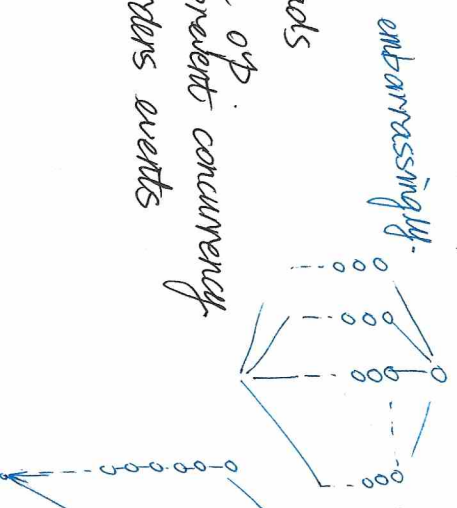 embarrassingly-
ads
op
prevent concurrency
rders events